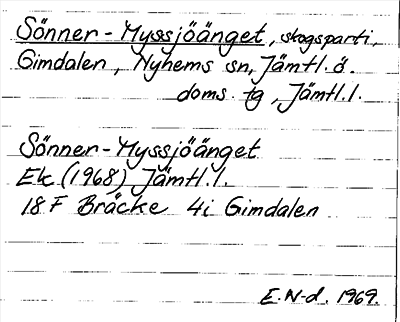 Sönner-Myssjöänget, skogsparti,
Gimdalen, Nyhems sn, Jämtl. ö.
doms. tg, Jämtl. l.
Sönner-Myssjöänget
Ek (1968) Jämtl. l.
18 F Bräcke 4i Gimdalen
E. N-d. 1969.